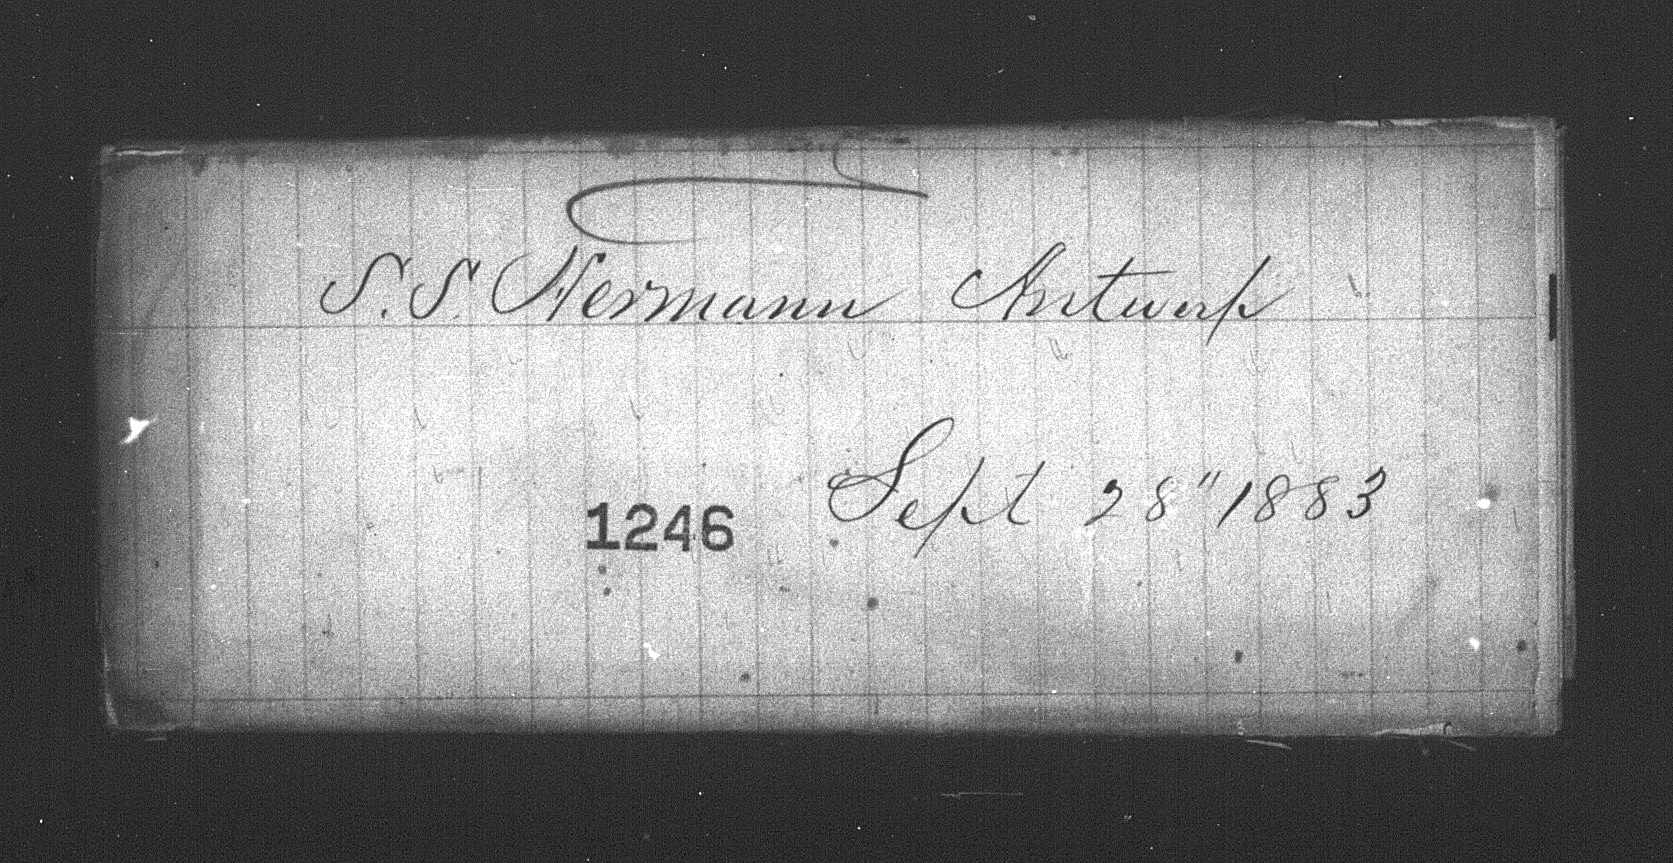 S. S. Hermann Antwerp
Sept 28" 1883
1246